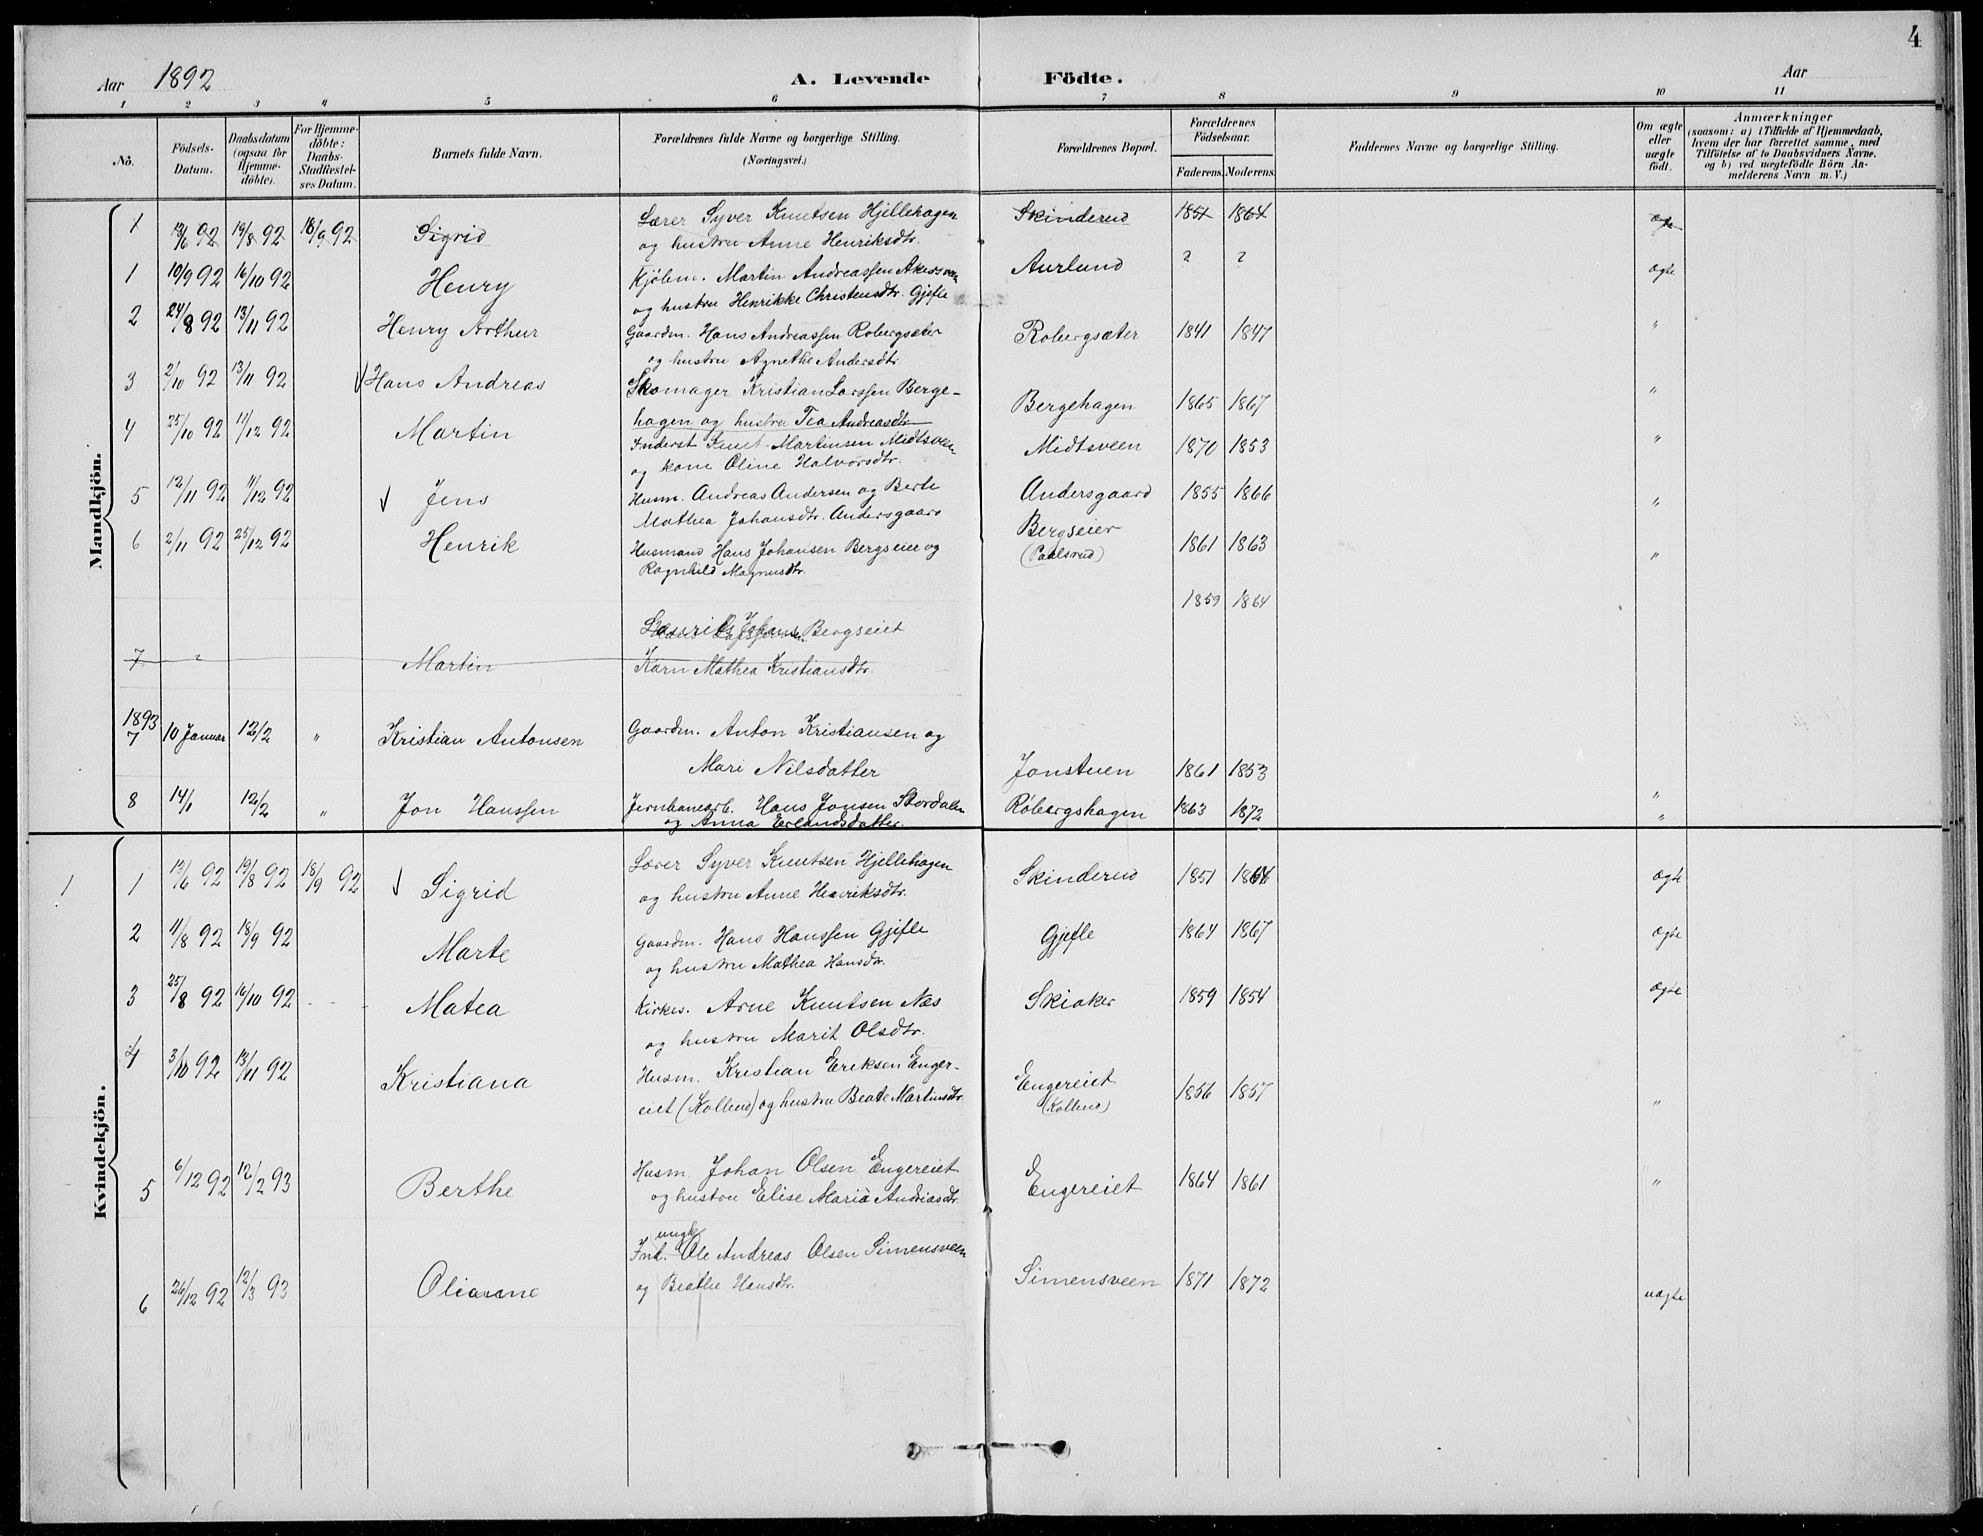 4
Aar 1892 A. Levende Födte. Aar
1 2 3 4 5 6 7 8 9 10 11
No. Födsels-Datum. Daabsdatum (ogsaa for Hjemme-döbte). For Hjemme-döbte: Daabs-Stadfæstel-ses Datum. Barnets fulde Navn. Forældrenes fulde Navne og borgerlige Stilling. (Næringsvei.) Forældrenes Bopæl. Forældrenes Födselsaar. Faderens. Moderens. Faddernes Navne og borgerlige Stilling. Om ægte eller uægte födt. Anmærkninger (saasom: a) i Tilfælde af Hjemmedaab, hvem der har forrettet samme, med Tilföielse af to Daabsvidners Navne, og b) ved uægtefödte Börn An-melderens Navn m. V.)
Mandkjön.
1 13/6 92 14/8 92 18/9 92 Sigrid Lærer Syver Knutsen Hjellehagen Skinderud 1851 1864 ægte
og hustru Anne Henriksdtr.
1 10/9 92 16/10 92 Henry Kjølem. Martin Andreassen Akersveen Aurlund ? ? ægte
og hustru Henrikke Christensdtr. Gjefle
2 24/8 92 13/11 92 Henry Arthur Gaardm. Hans Andreassen Robergsæter Robergsæter 1841 1847 "
og hustru Agnethe Andersdtr.
3 2/10 92 13/11 92 Hans Andreas Skomager Kristian Larssen Berge- Bergehagen 1865 1867 "
hagen og hustru Tea Andreasdtr
4 25/10 92 11/12 92 Martin Inderst Knut Martinsen Midtsveen Midtsveen 1870 1853 "
og kone Oline Halvorsdtr.
5 12/11 92 11/12 92 Jens Husm. Andreas Andersen og Berte Andersgaard 1855 1866 "
Mathea Johansdtr. Andersgaard
6 2/11 92 25/12 92 Henrik Husmand Hans Johansen Bergseiet og Bergseier (Paalsrud) 1861 1863 "
Ragnhild Magnusdtr.
1859 1864
Johansen Bergseiet
7 " Martin Karn Mathea Kristiansdtr.
1893
7 10 Januar 12/2 " Kristian Antonsen Gaardm. Anton Kristiansen og
Mari Nilsdatter Jonstuen 1861 1853 "
8 14/1 12/2 " Jon Hanssen Jernbanearb. Hans Jonsen Stordalen Røbergshagen 1863 1872 "
og Anna Erlandsdatter.
Kvindekjön.
1 1 13/6 92 14/8 92 18/9 92 Sigrid Lærer Syver Knutsen Hjellehagen Skinderud 1851 1864 ægte
og hustru Anne Henriksdtr.
2 11/8 92 18/9 92 Marte Gaardm. Hans Hanssen Gjefle Gjefle 1864 1867 ægte
og hustru Mathea Hansdtr.
3 25/8 92 16/10 92 - - Matea Kirkes. Arne Knutsen Næs Skiaker 1859 1854 ægte
og hustru Marit Olsdtr.
4 3/10 92 13/11 92 Kristiana Husm. Kristian Eriksen Enger- Engereiet (Kollerud) 1856 1857 "
eiet (Kollerud) og hustru Beate Martinsdtr.
5 6/12 92 12/2 93 Berthe Husm. Johan Olsen Engereiet Engereiet 1864 1861 "
og hustru Elise Maria Andreasdtr.
ungk.
6 26/12 92 12/3 93 Oliane Ind. Ole Andreas Olsen Simensveen Simensveen 1871 1872 uægte
og Beathe Hansdtr.